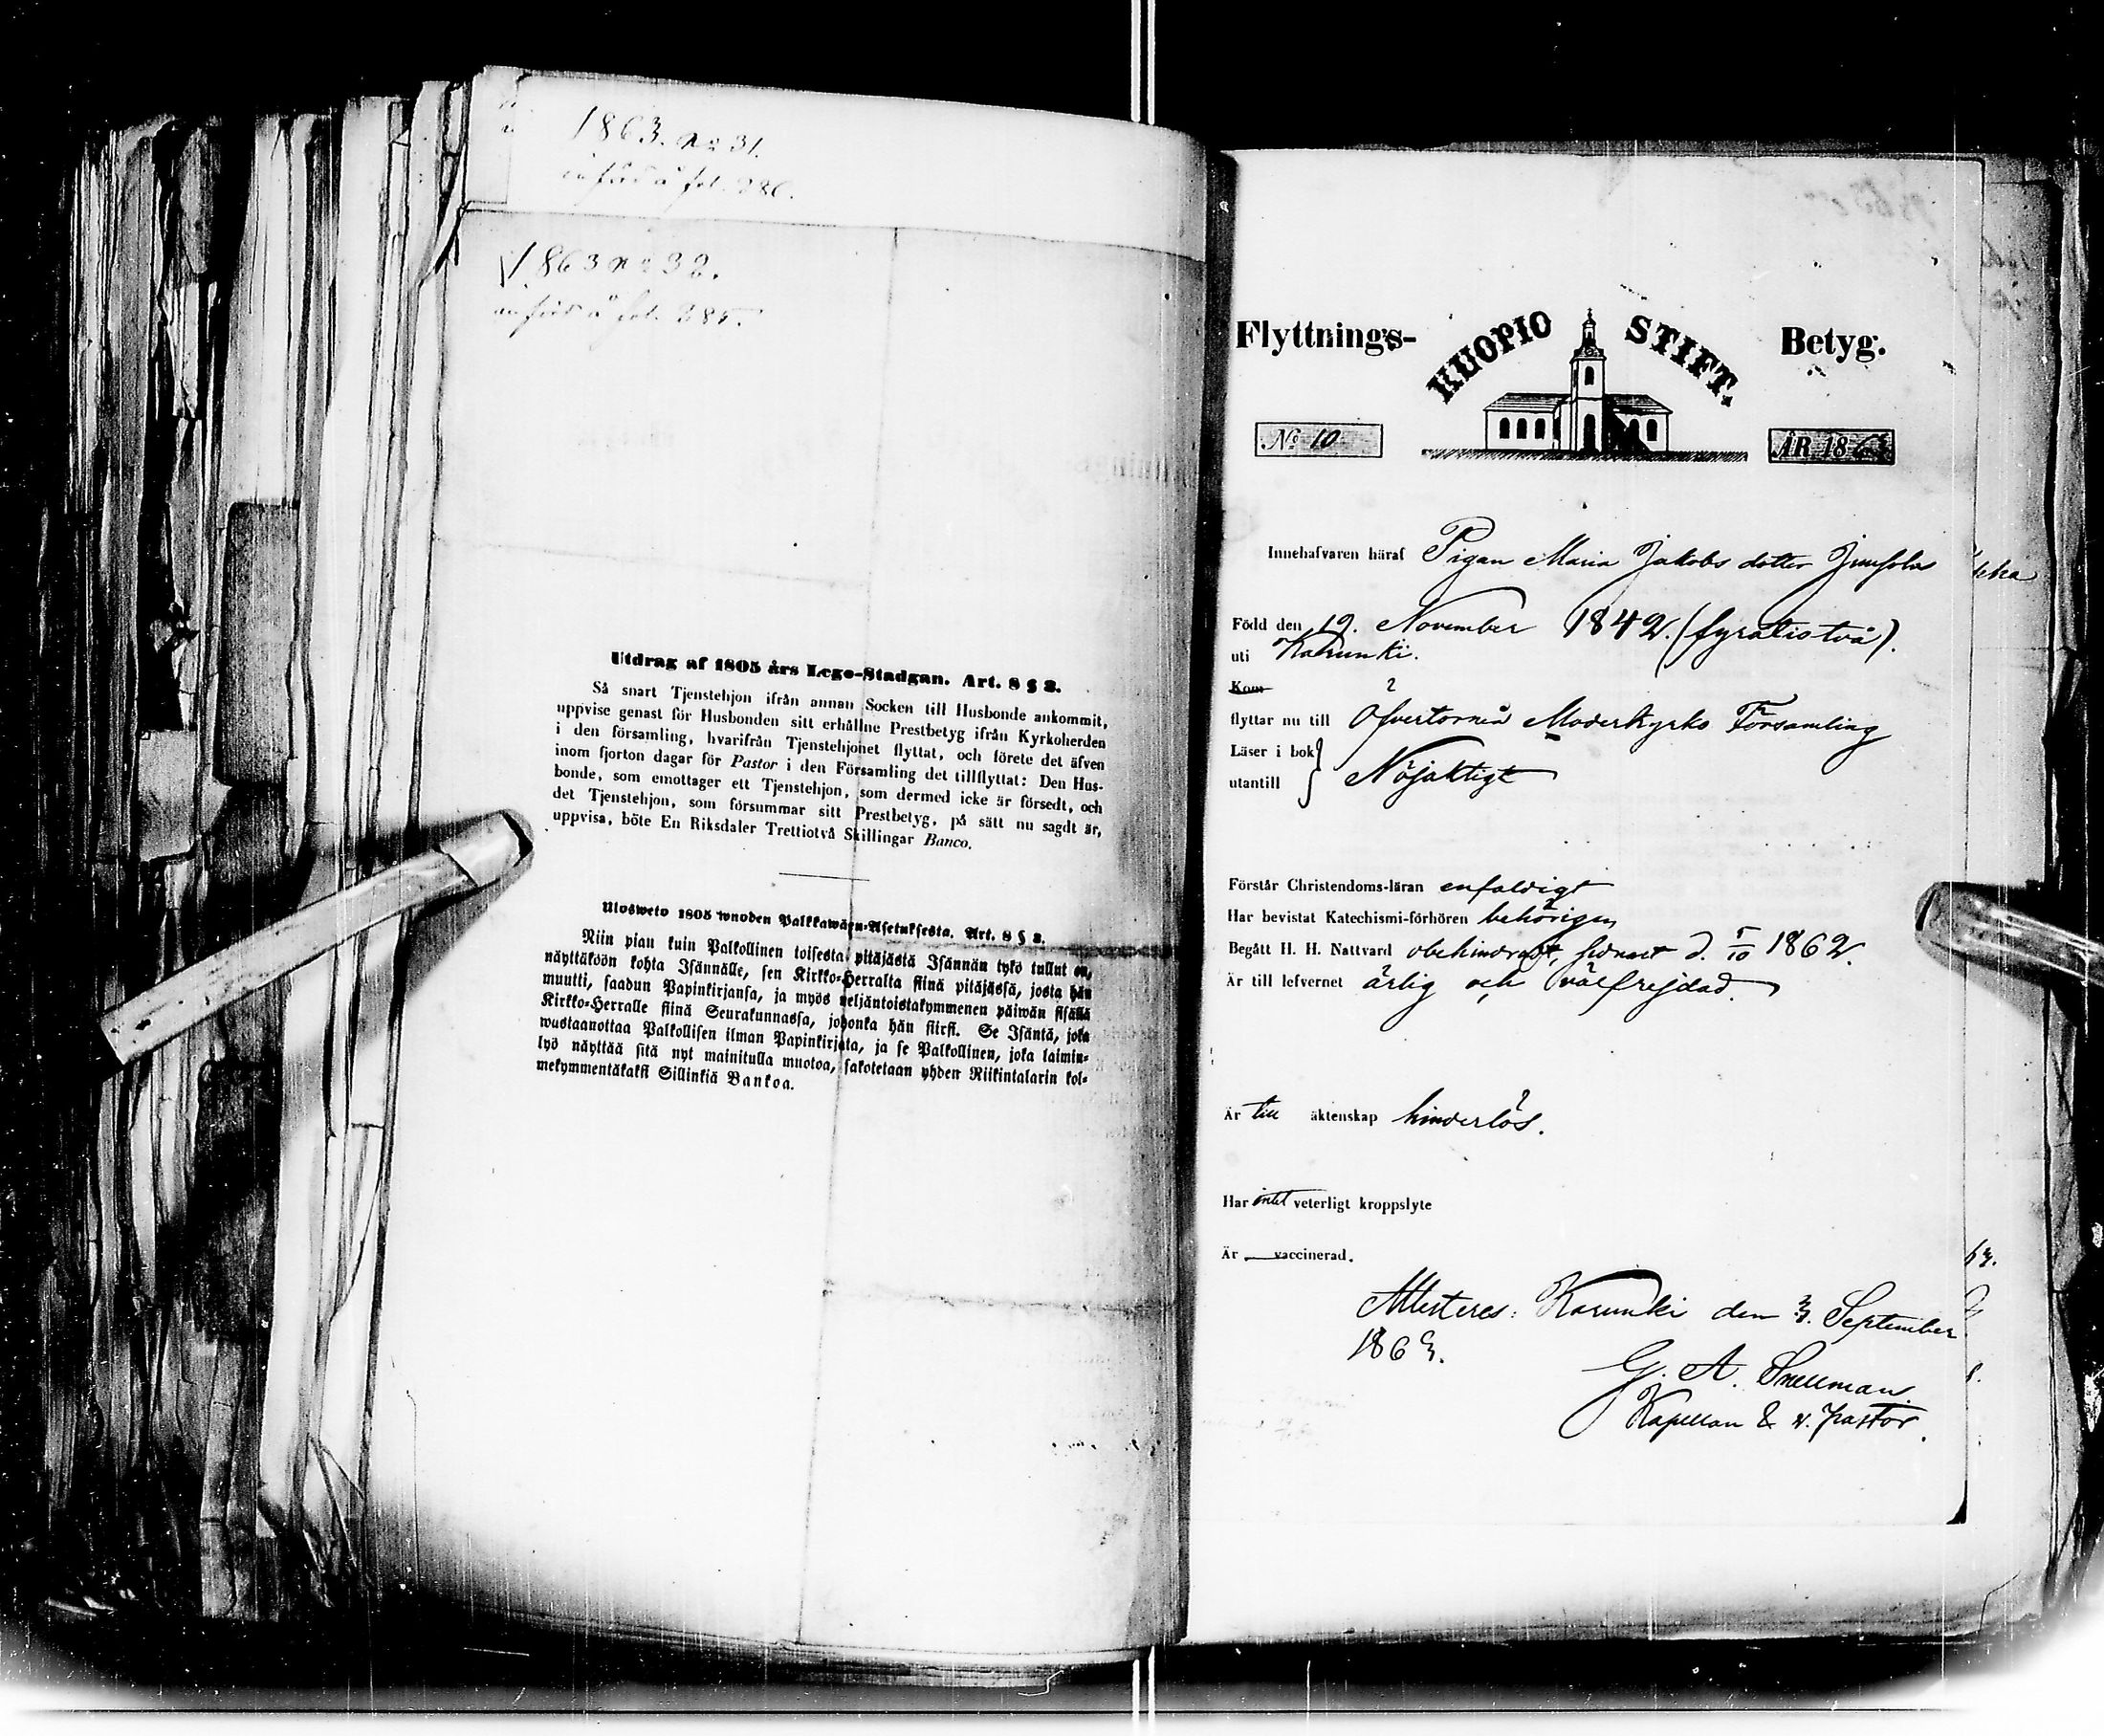 1863. No 31.
införd å fol. 386.
1863 No 32.
införd å fol. 385.
Utdrag af 1805 års Lego-Stadgan. Art. 8 § 2.
Så snart Tjenstehjon ifrån annan Socken till Husbonde ankommit,
uppvise genast för Husbonden sitt erhållne Prestbetyg ifrån Kyrkoherden
i den församling, hvarifrån Tjenstehjonet flyttat, och förete det äfven
inom fjorton dagar för Pastor i den Församling det tillflyttat: Den Hus-
bonde, som emottager ett Tjenstehjon, som dermed icke är försedt, och
det Tjenstehjon, som försummar sitt Prestbetyg, på sätt nu sagdt är,
uppvisa, böte En Riksdaler Trettiotvå Skillingar Banco.
Ulosweto 1805 wuoden Palkkawäen-Asetuksesta. Art. 8 § 2.
Niin pian kuin Palkollinen toisesta pitäjästä Isännän tykö tullut on,
näyttäköön kohta Isännälle, sen Kirkko-Herralta siinä pitäjässä, josta hän
muutti, saadun Papinkirjansa, ja myös neljäntoistakymmenen päiwän sisällä
Kirkko-Herralle siinä Seurakunnassa, johonka hän siirsi. Se Isäntä, joka
wastaanottaa Palkollisen ilman Papinkirjata, ja se Palkollinen, joka laimin-
lyö näyttää sitä nyt mainitulla muotoa, sakotetaan yhden Riikintalarin kol-
mekymmentäkaksi Sillinkiä Bankoa.
Flyttnings- KUOPIO STIFT. Betyg.
No 10 ÅR 1863
Innehafvaren häraf Pigan Maria Jakobs dotter
Född den 19. November 1842. (fyratiotvå).
uti Karunki.
Kom
flyttar nu till Öfvertorneå Moderkyrko Församling
Läser i bok
utantill Nöjaktigt
Förstår Christendoms-läran enfaldigt
Har bevistat Katechismi-förhören behörigen
Begått H. H. Nattvard obehindradt, sednast d. 5/10 1862.
Är till lefvernet ärlig och välfrejdad.
Är till äktenskap hinderlös.
Har intet veterligt kroppslyte
Är vaccinerad.
Attesteres: Karunki den 3. September
1863.
G. A. Snellman
Kapellan & v. Pastor.